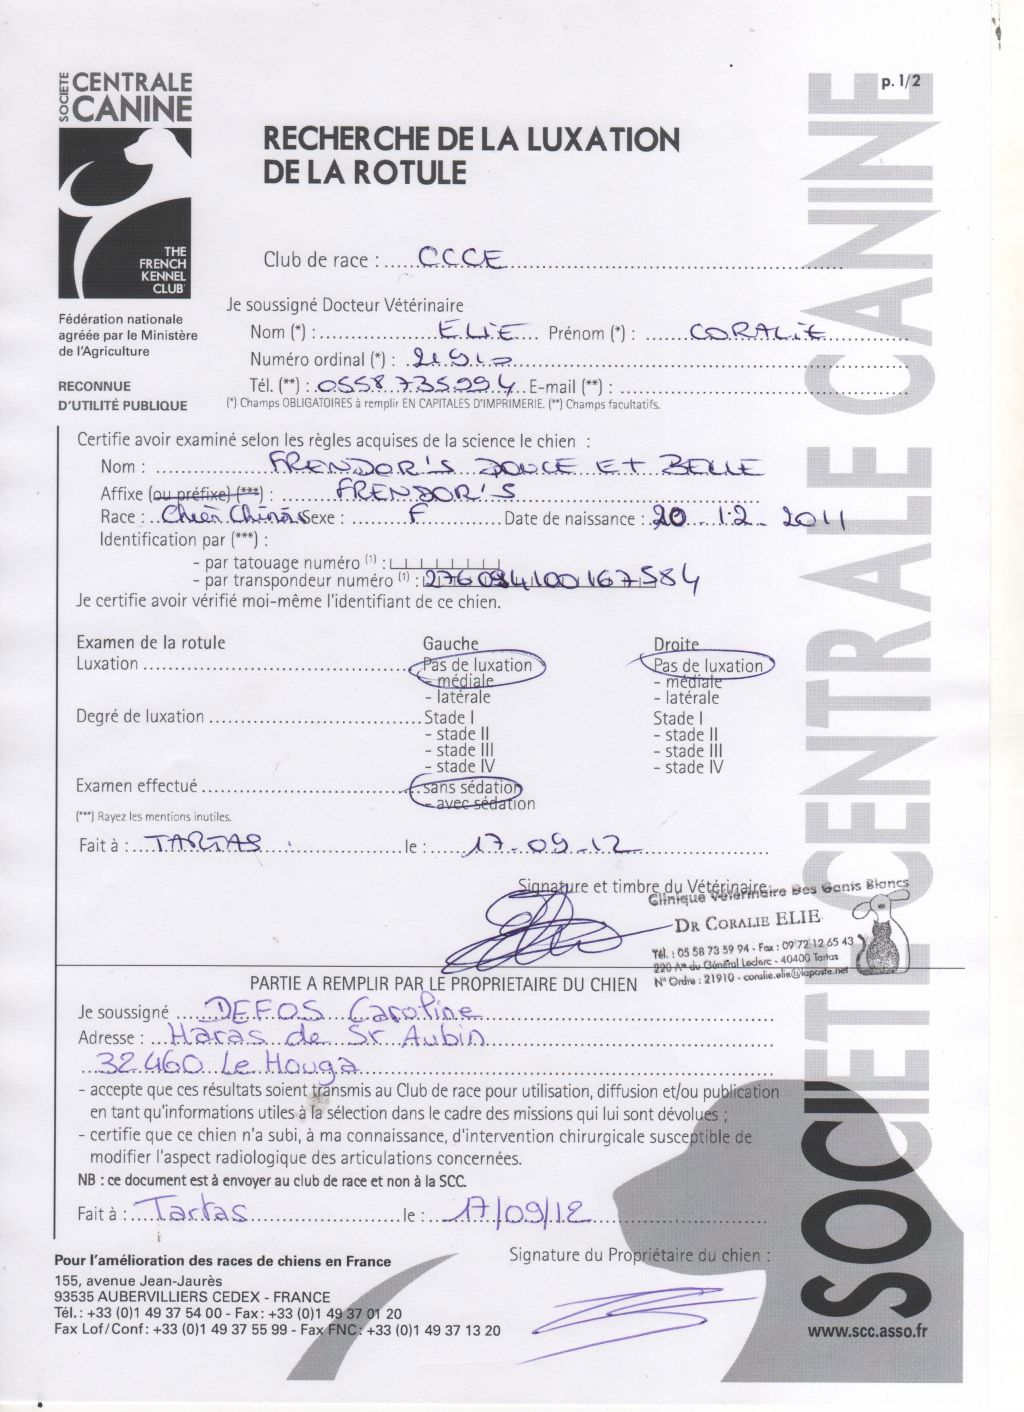 SOCIETE CENTRALE CANINE
p. 1/2
RECHERCHE DE LA LUXATION
DE LA ROTULE
THE
FRENCH
KENNEL
CLUB
Fédération nationale
agréée par le Ministère
de l'Agriculture
RECONNUE
D'UTILITÉ PUBLIQUE
Club de race : CCCE
Je soussigné Docteur Vétérinaire
Nom (*) : ELIE Prénom (*) : CORALIE
Numéro ordinal (*) : 21910
Tél. (**) : 0558735994 E-mail (**) :
(*) Champs OBLIGATOIRES à remplir EN CAPITALES D'IMPRIMERIE. (**) Champs facultatifs.
Certifie avoir examiné selon les règles acquises de la science le chien :
Nom : FRENDOR'S DOUCE ET BELLE
Affixe (ou préfixe) (***) : FRENDOR'S
Race : Chien Chinois Sexe : F Date de naissance : 20 12 2011
Identification par (***) :
- par tatouage numéro (1) :
- par transpondeur numéro (1) : 276094100167584
Je certifie avoir vérifié moi-même l'identifiant de ce chien.
Examen de la rotule Gauche Droite
Luxation Pas de luxation Pas de luxation
- médiale - médiale
- latérale - latérale
Degré de luxation Stade I Stade I
- stade II - stade II
- stade III - stade III
- stade IV - stade IV
Examen effectué sans sédation
- avec sédation
(***) Rayez les mentions inutiles.
Fait à : TARTAS le : 17-09-12
Signature et timbre du Vétérinaire
Clinique Vétérinaire Des Ganis Blancs
DR CORALIE ELIE
Tél. : 05 58 73 59 94 - Fax : 09 72 12 65 43
220 Av du Général Leclerc - 40400 Tartas
N° Ordre : 21910 - coralie.elie@laposte.net
PARTIE A REMPLIR PAR LE PROPRIETAIRE DU CHIEN
Je soussigné DEFOS Caroline
Adresse : Haras de St Aubin
32460 Le Houga
- accepte que ces résultats soient transmis au Club de race pour utilisation, diffusion et/ou publication
en tant qu'informations utiles à la sélection dans le cadre des missions qui lui sont dévolues ;
- certifie que ce chien n'a subi, à ma connaissance, d'intervention chirurgicale susceptible de
modifier l'aspect radiologique des articulations concernées.
NB : ce document est à envoyer au club de race et non à la SCC.
Fait à : Tartas le : 17/09/12
Signature du Propriétaire du chien :
Pour l'amélioration des races de chiens en France
155, avenue Jean-Jaurès
93535 AUBERVILLIERS CEDEX - FRANCE
Tél. : +33 (0)1 49 37 54 00 - Fax : +33 (0)1 49 37 01 20
Fax Lof/Conf : +33 (0)1 49 37 55 99 - Fax FNC : +33 (0)1 49 37 13 20
SOCIETE CENTRALE CANINE
www.scc.asso.fr